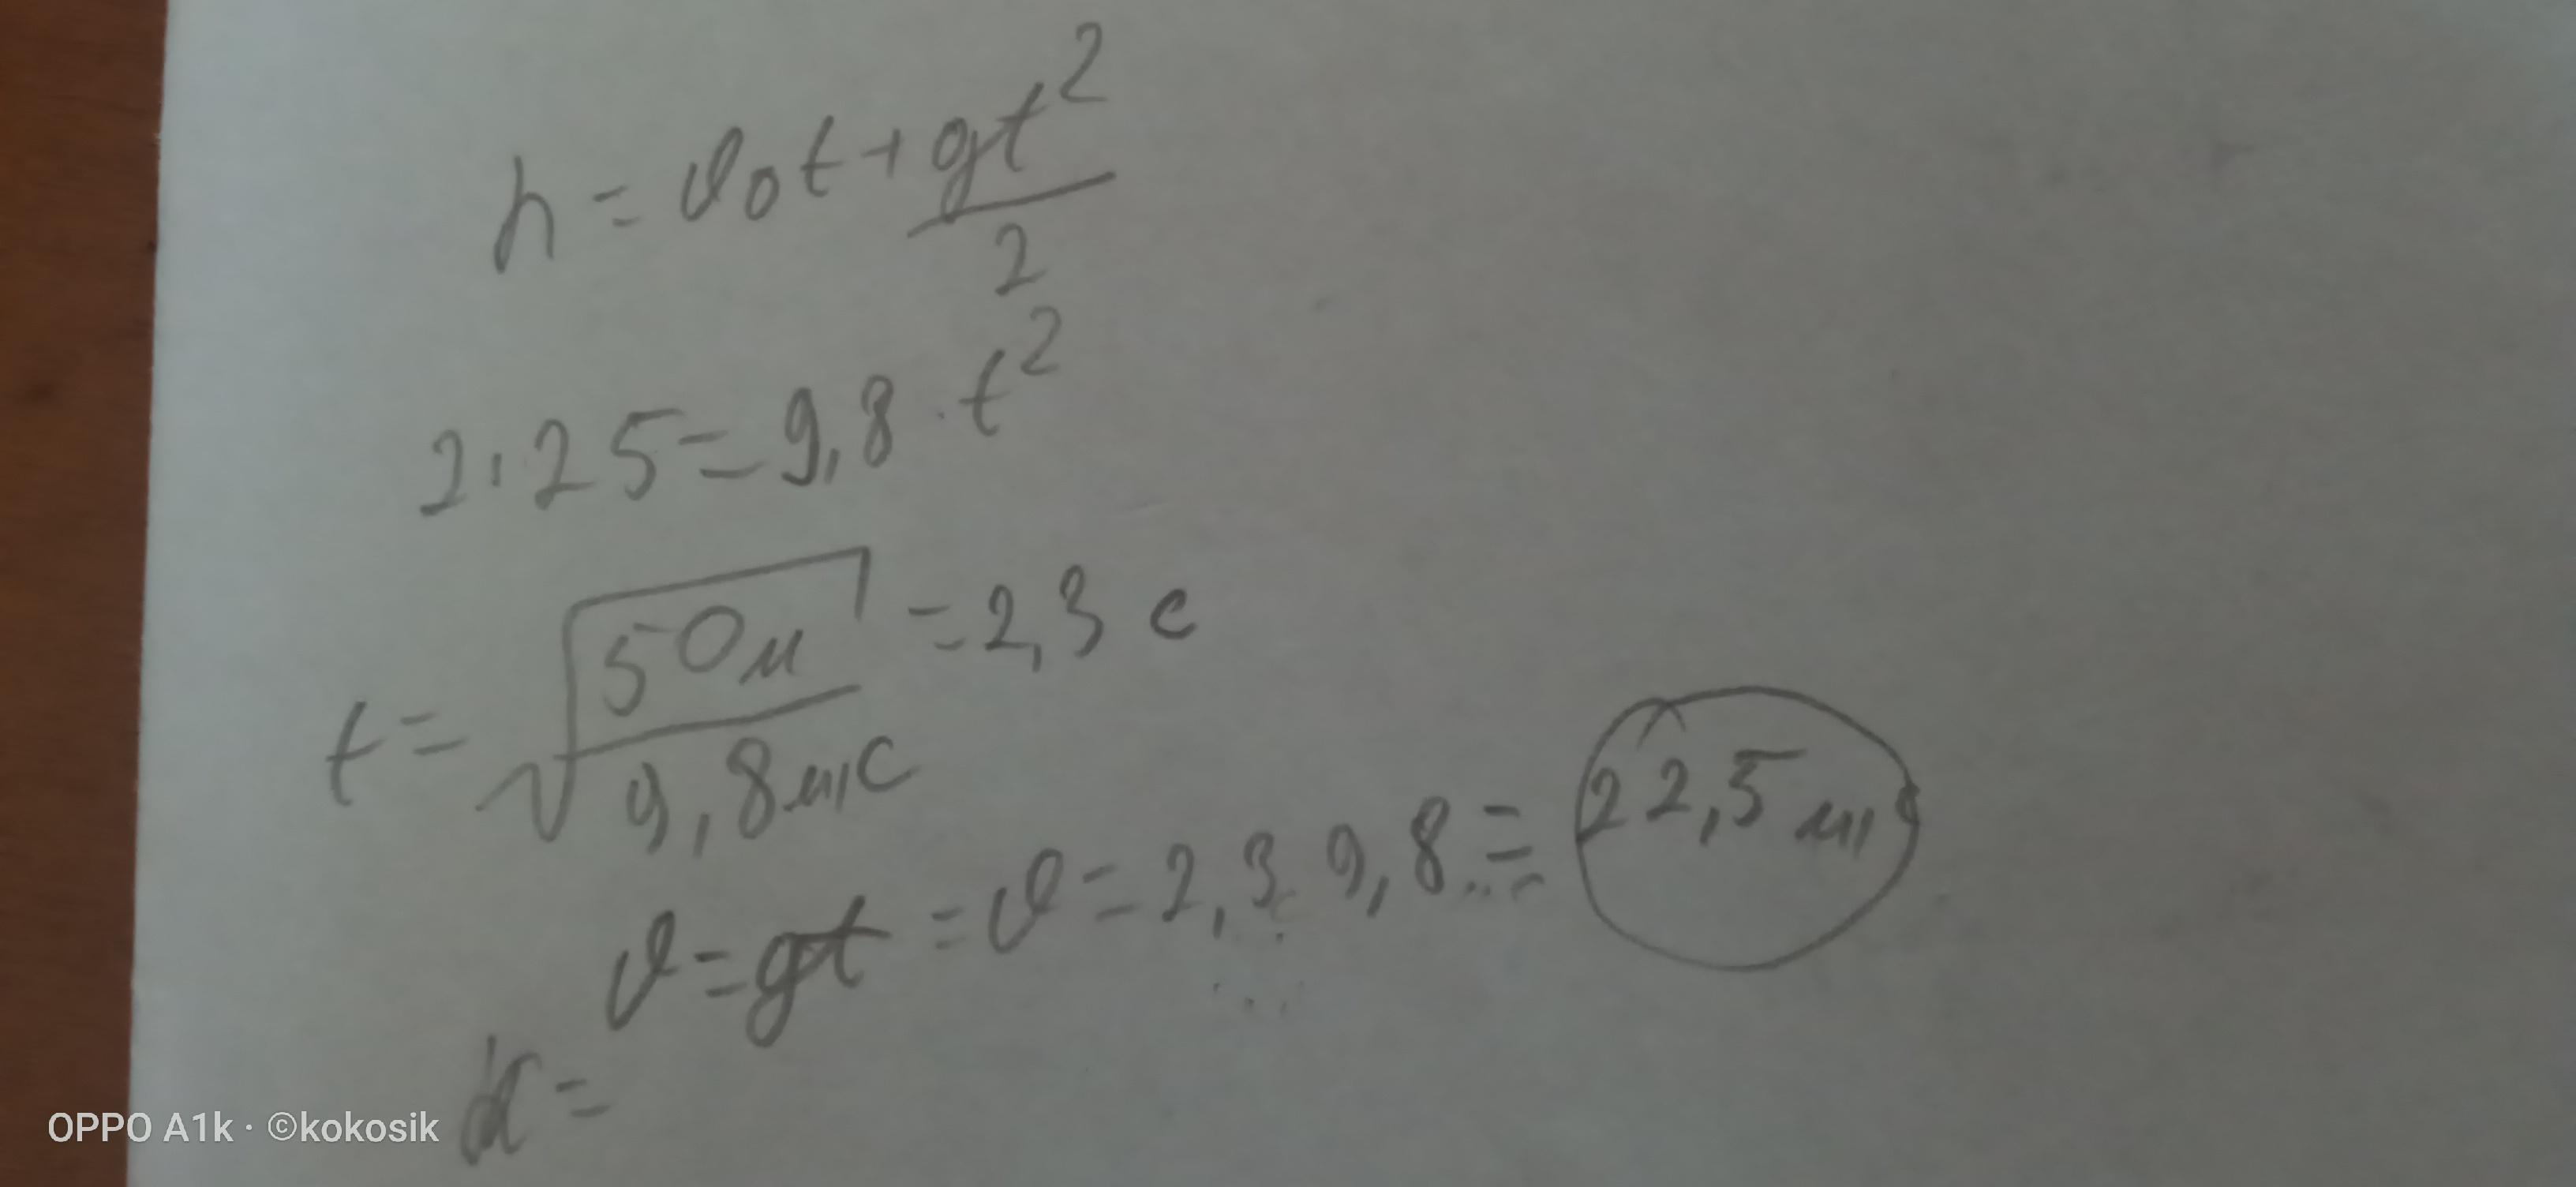 h = v₀t + gt²/2
2·25 = 9,8·t²
t = √(50м/9,8м/с) = 2,3 с
v = gt = v = 2,3 9,8 = 22,5 м/
OPPO A1k · ©kokosik